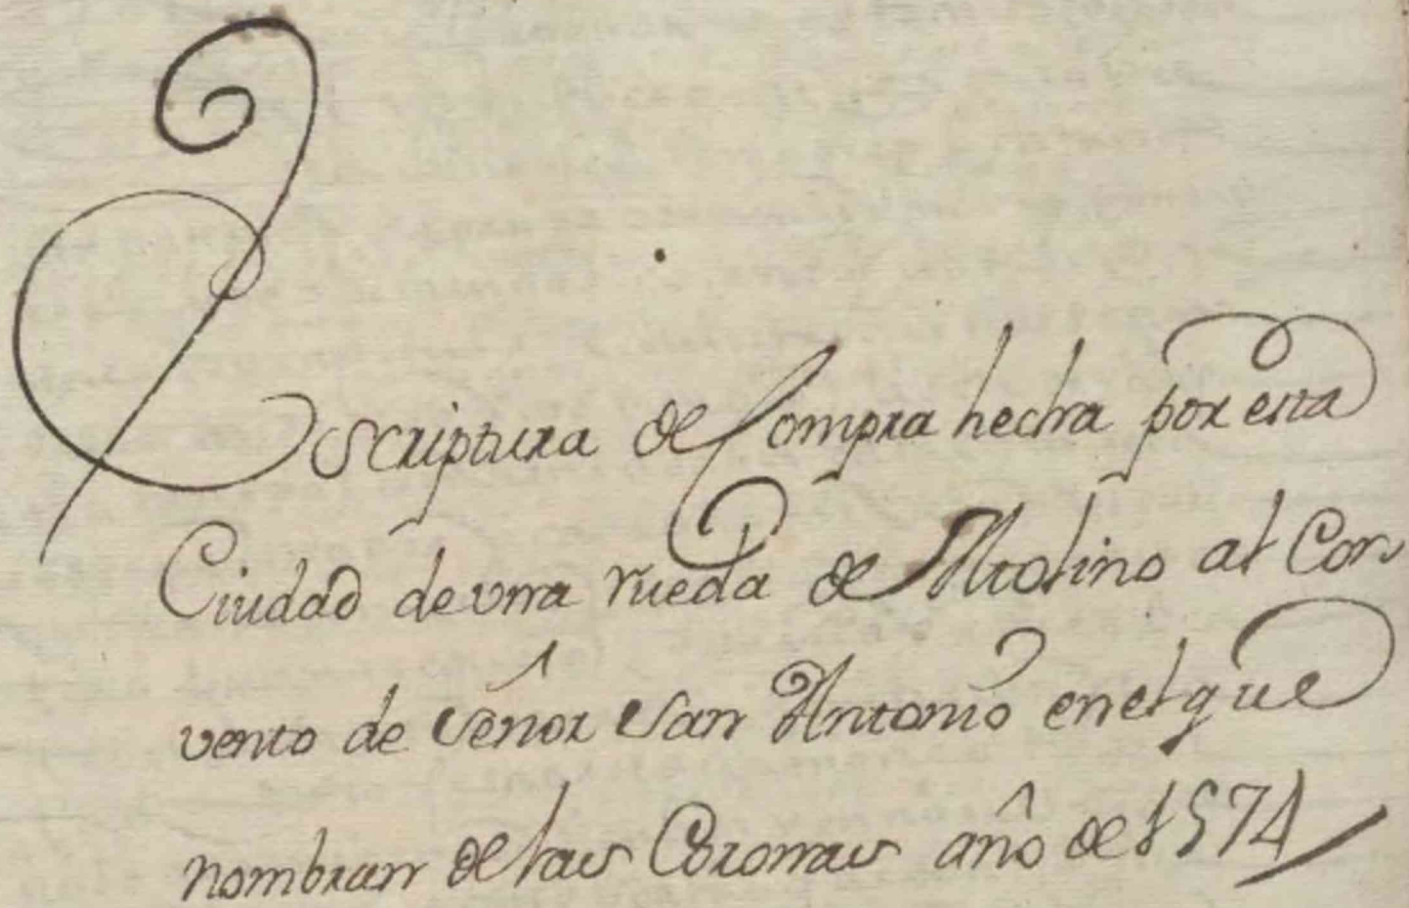 Escriptura de Compra hecha por esta
Ciudad de vna rueda de Molino al Con
vento de señor san Antonio en el que
nombran de las Coronas año de 1574